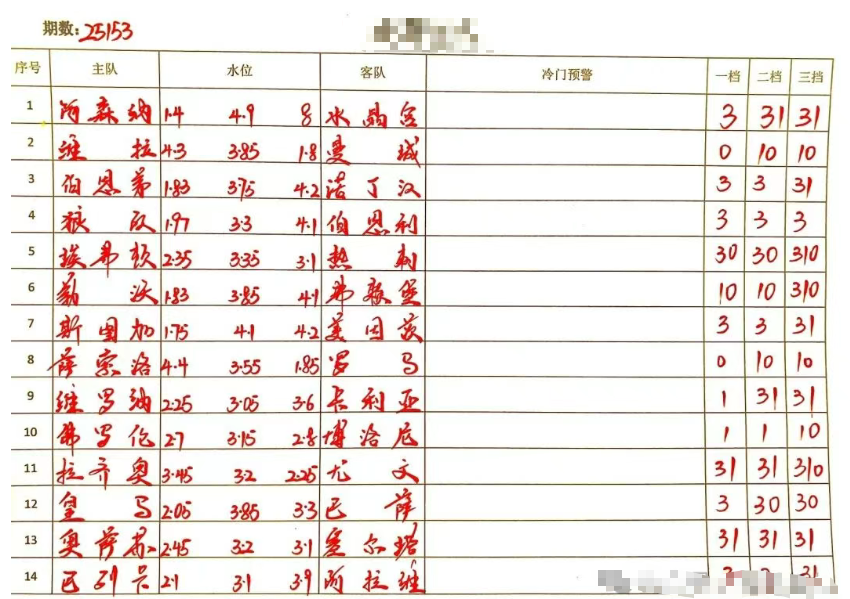 期数: 25153
序号 主队 水位 客队 冷门预警 一档 二档 三挡
1 阿森纳 1.4 4.9 8 水晶宫 3 31 31
2 维拉 4.3 3.85 1.8 曼城 0 10 10
3 伯恩茅 1.83 3.75 4.2 诺丁汉 3 3 31
4 狼队 1.97 3.3 4.1 伯恩利 3 3 3
5 埃弗顿 2.35 3.35 3.1 热刺 30 30 310
6 勒沃 1.83 3.85 4.1 弗赖堡 10 10 310
7 斯图加 1.75 4.1 4.2 美因茨 3 3 31
8 萨索洛 4.4 3.55 1.85 罗马 0 10 10
9 维罗纳 2.25 3.05 3.6 卡利亚 1 31 31
10 佛罗伦 2.7 3.15 2.8 博洛尼 1 1 10
11 拉齐奥 3.45 3.2 2.25 尤文 31 31 310
12 皇马 2.05 3.85 3.3 巴萨 3 30 30
13 奥萨苏 2.45 3.2 3.1 塞尔塔 31 31 31
14 巴列卡 2.1 3.1 3.9 阿拉维 31